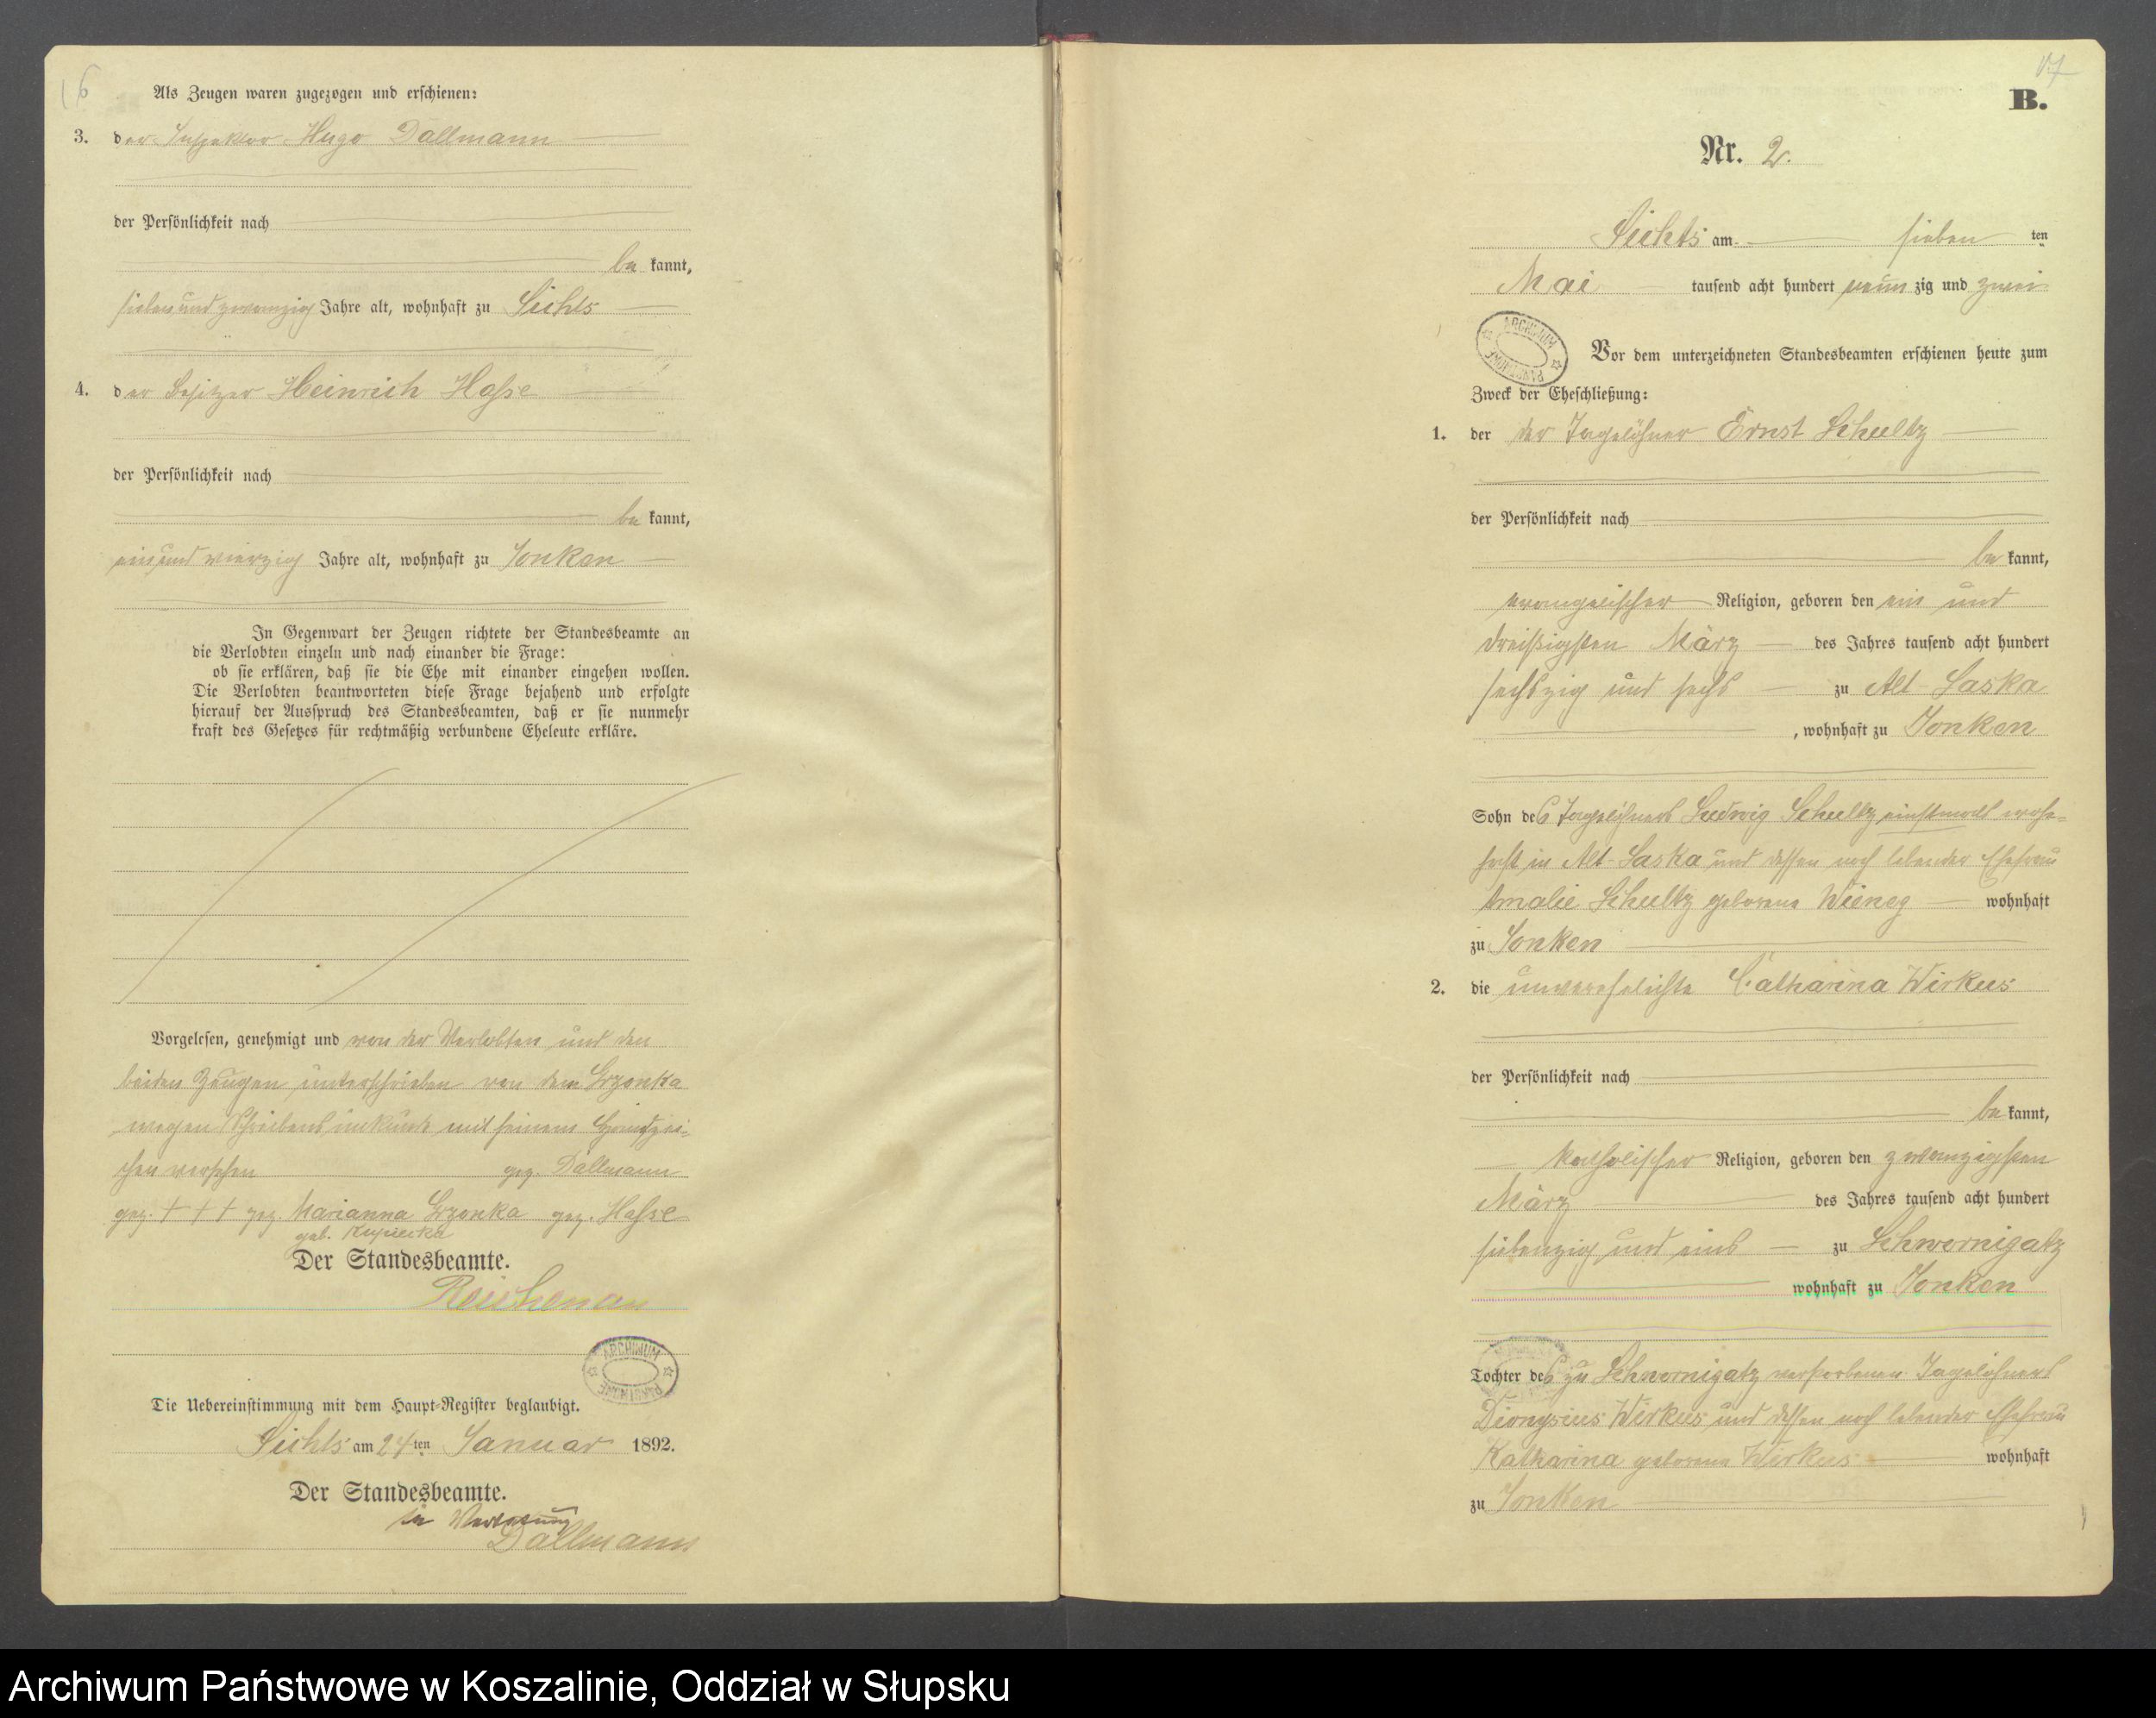 16
Als Zeugen waren zugezogen und erschienen:
3. der Inspektor Hugo Dallmann
der Persönlichkeit nach
be kannt,
sieben und zwanzig Jahre alt, wohnhaft zu Sichts
4. der Besitzer Heinrich Hasse
der Persönlichkeit nach
be kannt,
ein und vierzig Jahre alt, wohnhaft zu Jonken
In Gegenwart der Zeugen richtete der Standesbeamte an
die Verlobten einzeln und nach einander die Frage:
ob sie erklären, daß sie die Ehe mit einander eingehen wollen.
Die Verlobten beantworteten diese Frage bejahend und erfolgte
hierauf der Ausspruch des Standesbeamten, daß er sie nunmehr
kraft des Gesetzes für rechtmäßig verbundene Eheleute erkläre.
Vorgelesen, genehmigt und von der Verlobten und den
beiden Zeugen unterschrieben von dem Grzonka
wegen Schreibens unkunde mit seinem Handzei-
chen versehen gez. Dallmann
gez. +++ gez. Marianna Grzonka gez. Hasse
geb.
Der Standesbeamte.
Reichenau
ARCHIWUM PAŃSTWOWE
Die Uebereinstimmung mit dem Haupt-Register beglaubigt.
Sichts am 24ten Januar 1892.
Der Standesbeamte.
in Vertretung
Dallmann
17
B.
Nr. 2.
Sichts am sieben ten
Mai tausend acht hundert neun zig und zwei
ARCHIWUM PAŃSTWOWE
Vor dem unterzeichneten Standesbeamten erschienen heute zum
Zweck der Eheschließung:
1. der der Tagelöhner Ernst Schultz
der Persönlichkeit nach
be kannt,
evangelischer Religion, geboren den ein und
dreißigsten März des Jahres tausend acht hundert
sechszig und sechs zu Alt-Laska
, wohnhaft zu Jonken
Sohn des Tagelöhners Ludwig Schultz einstmals wohn-
haft in Alt-Laska und dessen noch lebender Ehefrau
Amalie Schultz geborene wohnhaft
zu Jonken
2. die unverehelichte Catharina Wirkus
der Persönlichkeit nach
be kannt,
katholischer Religion, geboren den zwanzigsten
März des Jahres tausend acht hundert
siebenzig und eins zu Schwornigatz
wohnhaft zu Jonken
Tochter des zu Schwornigatz verstorbenen Tagelöhners
Dionysius Wirkus und dessen noch lebender Ehefrau
Katharina geborene Wirkus wohnhaft
zu Jonken
Archiwum Państwowe w Koszalinie, Oddział w Słupsku